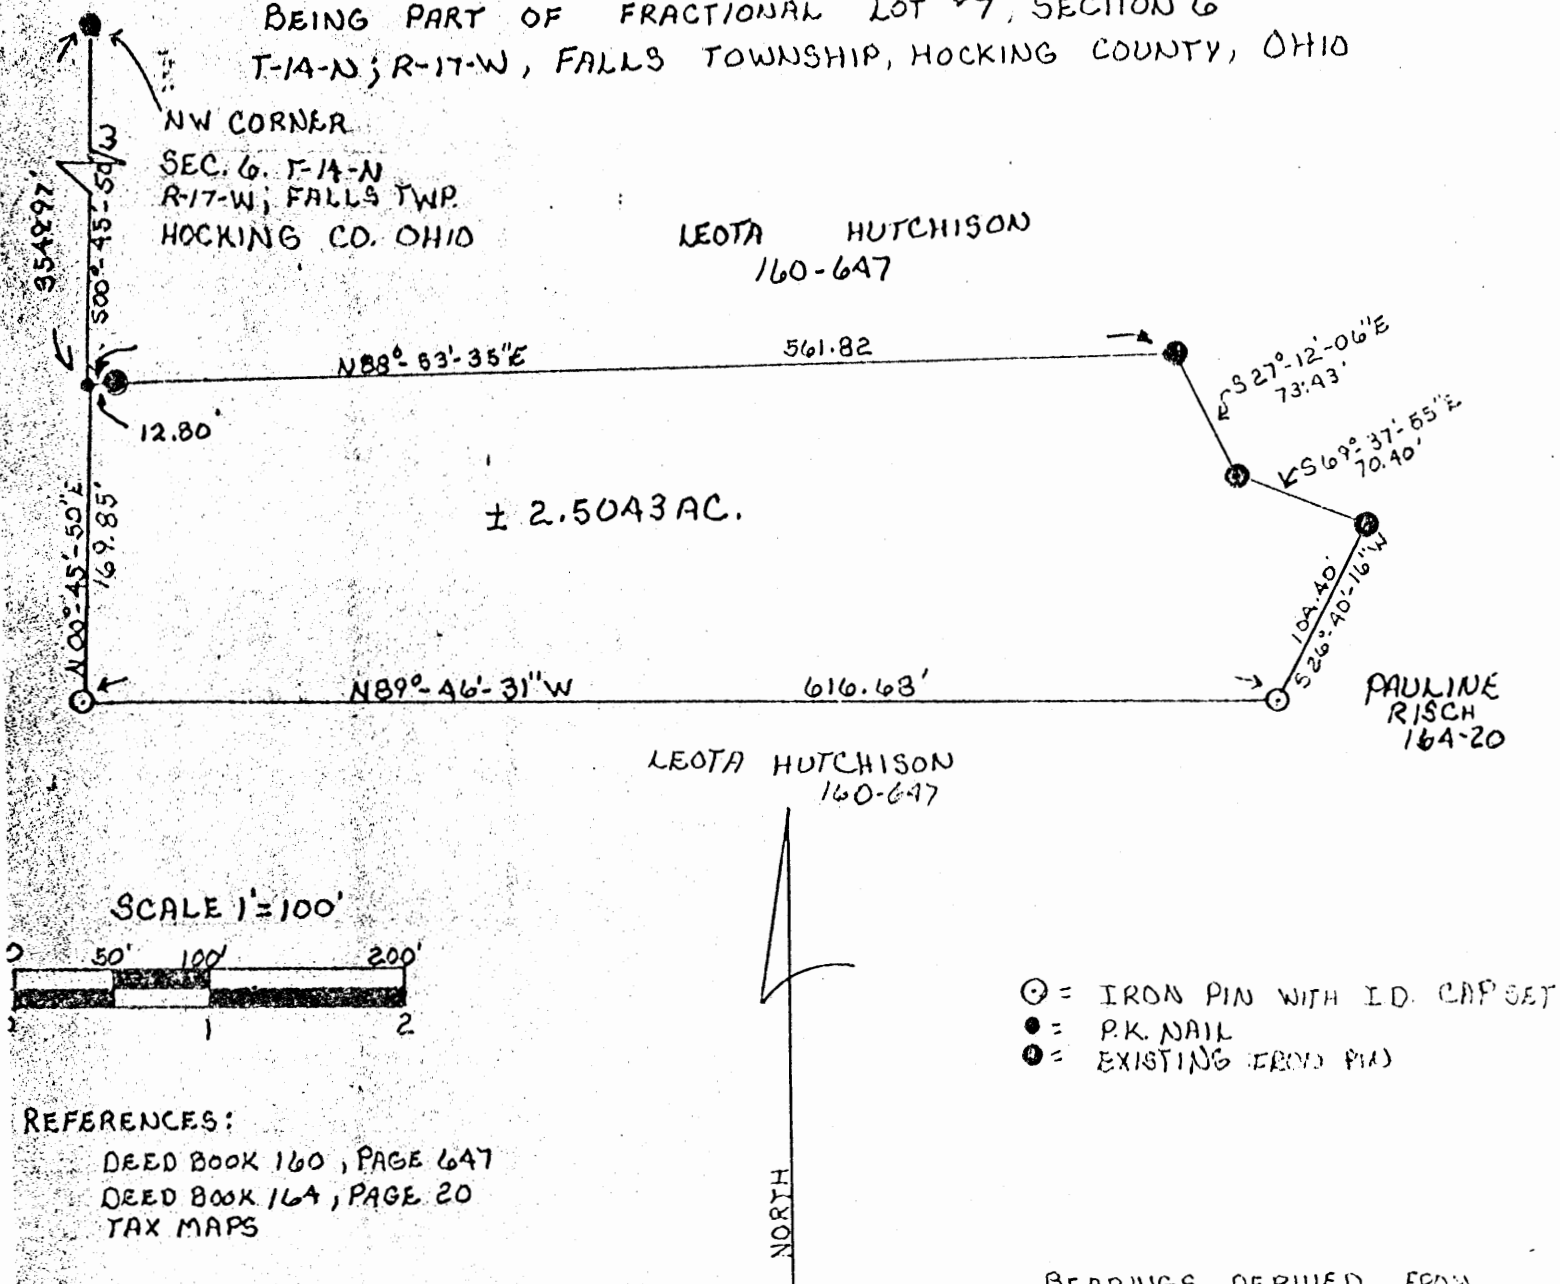 BEING PART OF FRACTIONAL LOT #7, SECTION 6
T-14-N; R-17-W, FALLS TOWNSHIP, HOCKING COUNTY, OHIO
NW CORNER
SEC. 6. T-14-N
R-17-W; FALLS TWP.
HOCKING CO. OHIO
S00°-45'-50"W
LEOTA HUTCHISON
160-647
N88°-53'-35"E 561.82
S27°-12'-06"E
73.43'
S69°-37'-55"E
70.40'
12.80'
± 2.5043 AC.
N00°-45'-50"E
169.85'
104.40'
S26°-40'-16"W
N89°-46'-31"W 616.63'
PAULINE
RISCH
164-20
LEOTA HUTCHISON
160-647
SCALE 1"=100'
0 50' 100' 200'
1 2
⊙ = IRON PIN WITH I.D. CAP SET
● = P.K. NAIL
= EXISTING IRON PIN
REFERENCES:
DEED BOOK 160, PAGE 647
DEED BOOK 164, PAGE 20
TAX MAPS
NORTH
BEARINGS DERIVED FROM